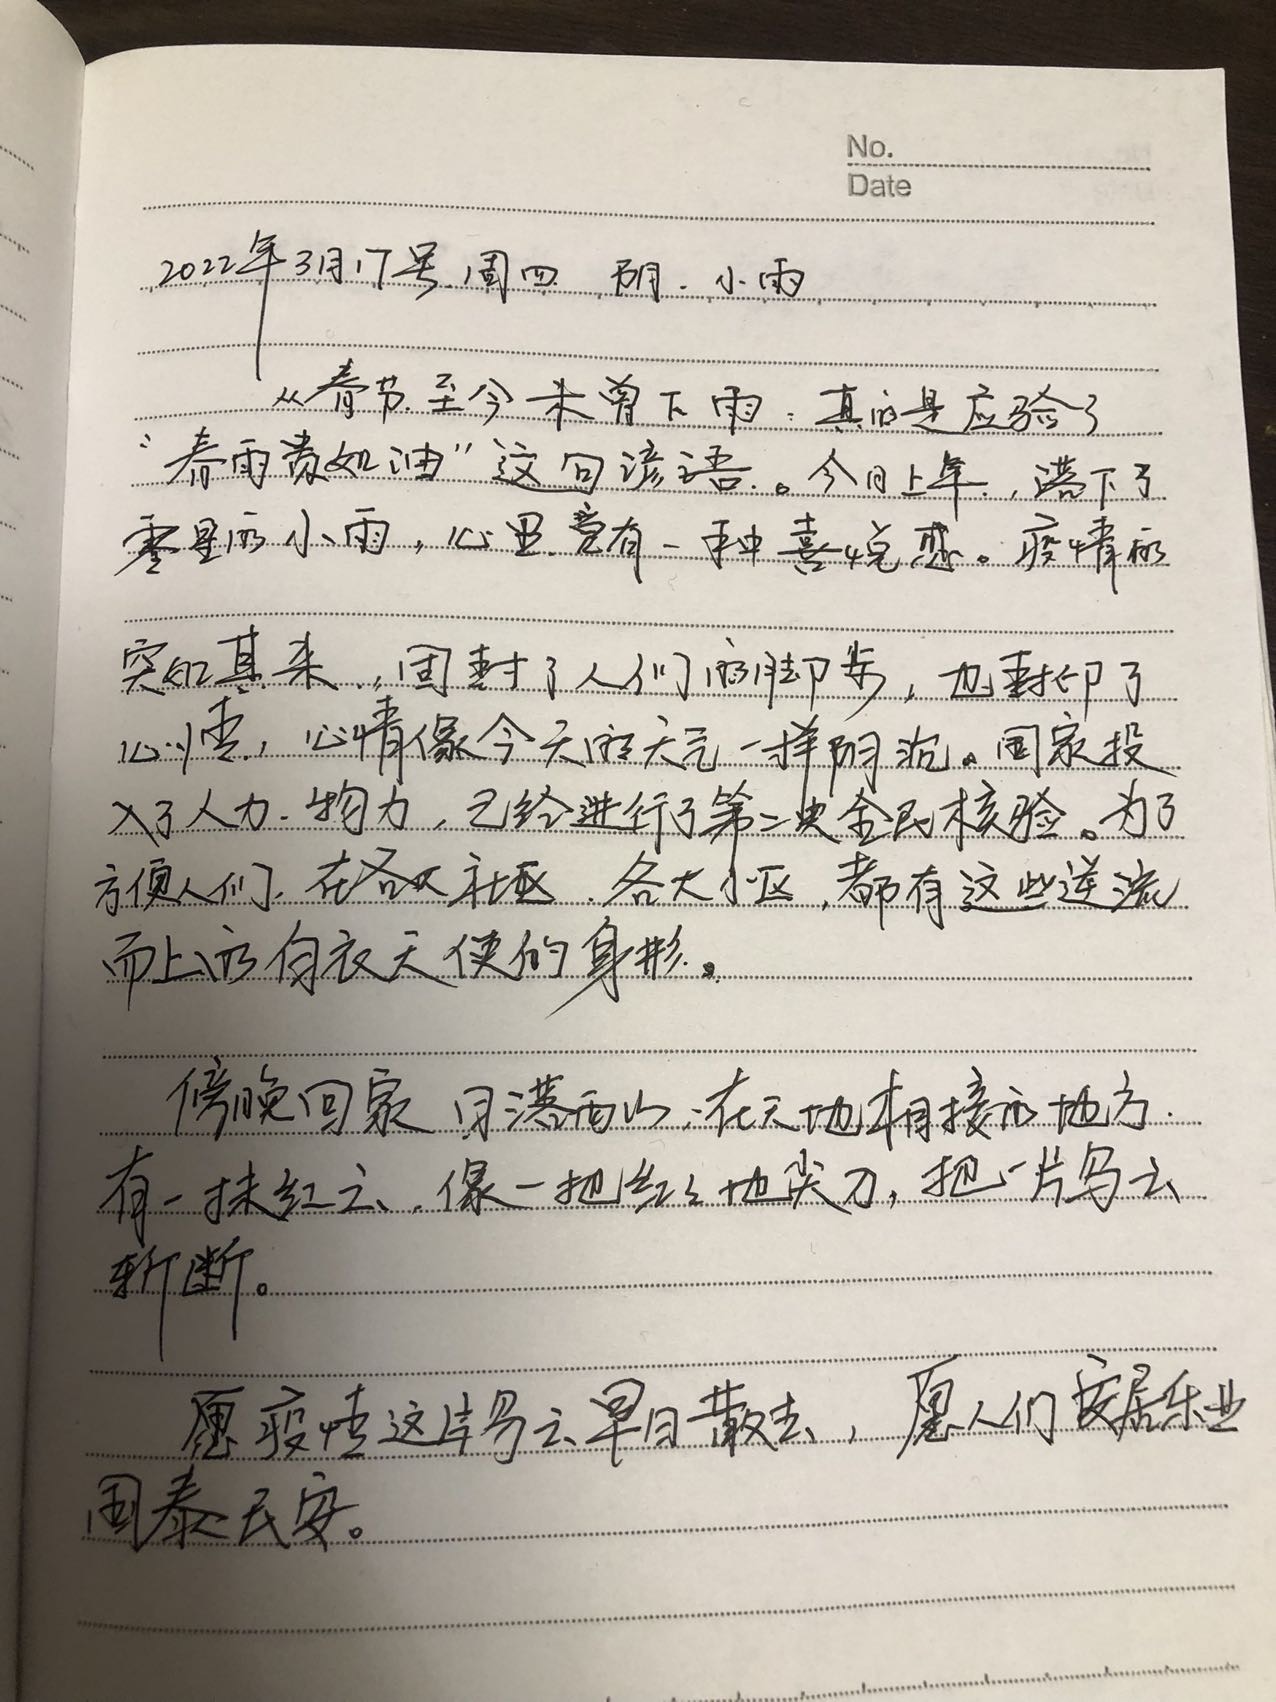 No.
Date
2022年3月17号 周四 阴.小雨
从春节至今未曾下雨,真的是应验了
“春雨贵如油”这句谚语。今日上午,落下了
零星的小雨,心里竟有一种喜悦感。疫情的
突如其来,困封了人们的脚步,也封印了
心情,心情像今天的天气一样阴沉。国家投
入了人力.物力,已经进行了第二次全民核验。为了
方便人们.在各大社区.各大小区,都有这些逆流
而上的白衣天使的身形。
傍晚回家 日落西山,在天地相接的地方.
有一抹红云,像一把红红地尖刀,把一片乌云
斩断。
愿疫情这片乌云早日散去,愿人们安居乐业
国泰民安。